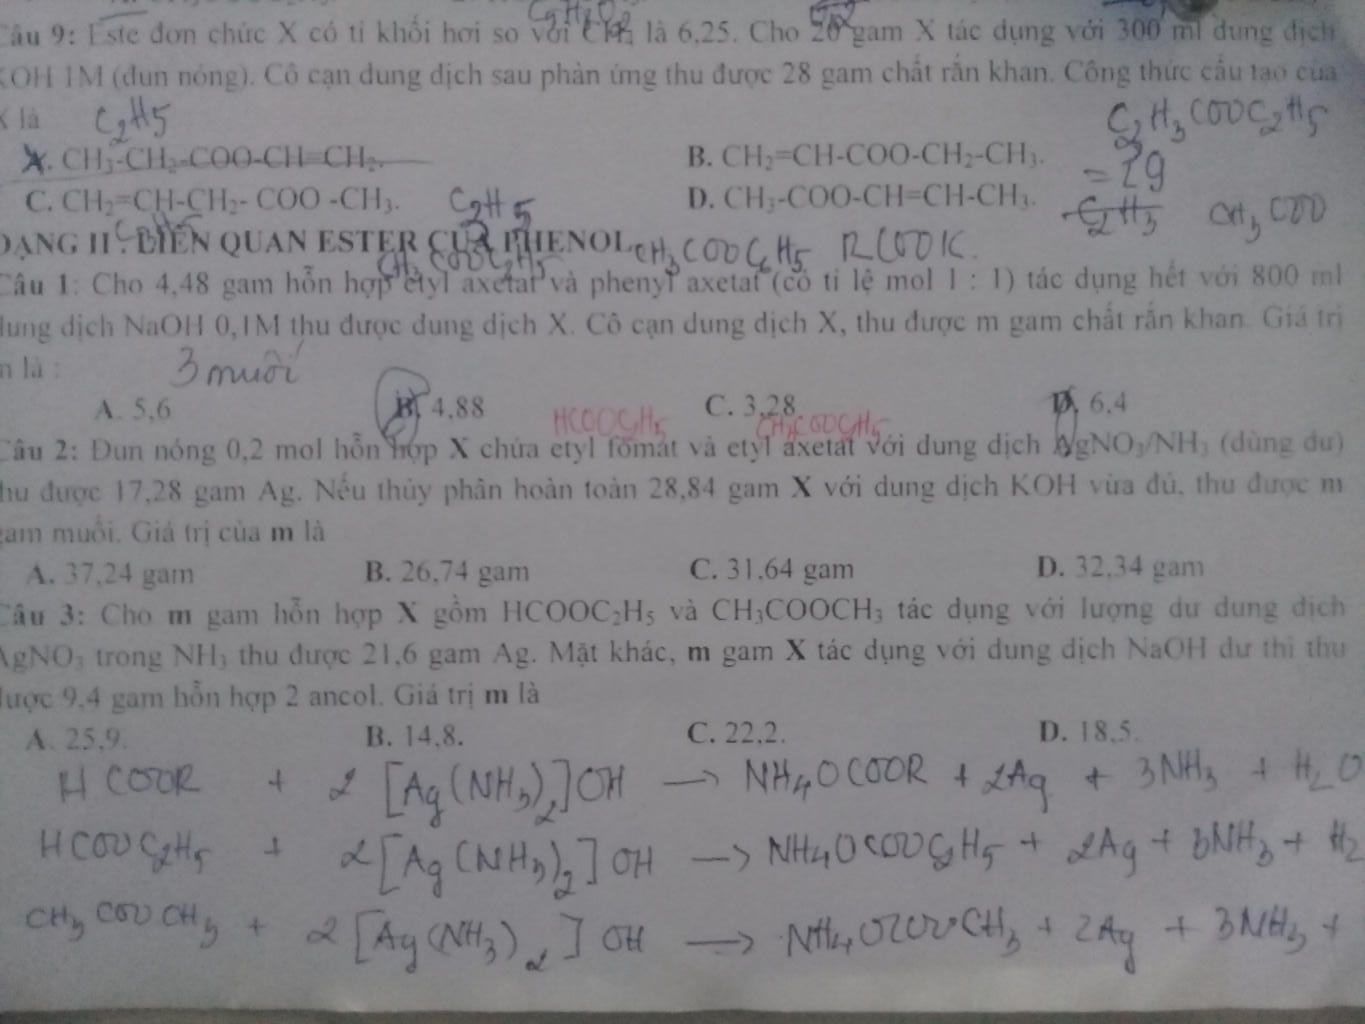 Câu 9: Este đơn chức X có tỉ khối hơi so với CH4 là 6,25. Cho 20 gam X tác dụng với 300 ml dung dịch
KOH 1M (đun nóng). Cô cạn dung dịch sau phản ứng thu được 28 gam chất rắn khan. Công thức cấu tạo của
X là C2H5
C2H3COOC2H5
A. CH3-CH2-COO-CH=CH2. B. CH2=CH-COO-CH2-CH3.
= 29
C. CH2=CH-CH2- COO -CH3. D. CH3-COO-CH=CH-CH3.
C2H5 C2H5 CH3COO
DẠNG II : LIÊN QUAN ESTER CỦA PHENOL CH3COOC6H5 RCOOK.
CH3COOC2H5
Câu 1: Cho 4,48 gam hỗn hợp etyl axetat và phenyl axetat (có tỉ lệ mol 1 : 1) tác dụng hết với 800 ml
dung dịch NaOH 0,1M thu được dung dịch X. Cô cạn dung dịch X, thu được m gam chất rắn khan. Giá trị
m là : 3 muối
A. 5,6 B. 4,88 C. 3,28 D. 6,4
HCOOC2H5 CH3COOC2H5
Câu 2: Đun nóng 0,2 mol hỗn hợp X chứa etyl fomat và etyl axetat với dung dịch AgNO3/NH3 (dùng dư)
thu được 17,28 gam Ag. Nếu thủy phân hoàn toàn 28,84 gam X với dung dịch KOH vừa đủ, thu được m
gam muối. Giá trị của m là
A. 37,24 gam B. 26,74 gam C. 31,64 gam D. 32,34 gam
Câu 3: Cho m gam hỗn hợp X gồm HCOOC2H5 và CH3COOCH3 tác dụng với lượng dư dung dịch
AgNO3 trong NH3 thu được 21,6 gam Ag. Mặt khác, m gam X tác dụng với dung dịch NaOH dư thì thu
được 9,4 gam hỗn hợp 2 ancol. Giá trị m là
A. 25,9. B. 14,8. C. 22,2. D. 18,5.
HCOOR + 2 [Ag(NH3)2]OH → NH4OCOOR + 2Ag + 3NH3 + H2O
HCOOC2H5 + 2[Ag(NH3)2]OH → NH4OCOOC2H5 + 2Ag + 3NH3 + H2
CH3COOCH3 + 2[Ag(NH3)2]OH → NH4OCOOCH3 + 2Ag + 3NH3 +